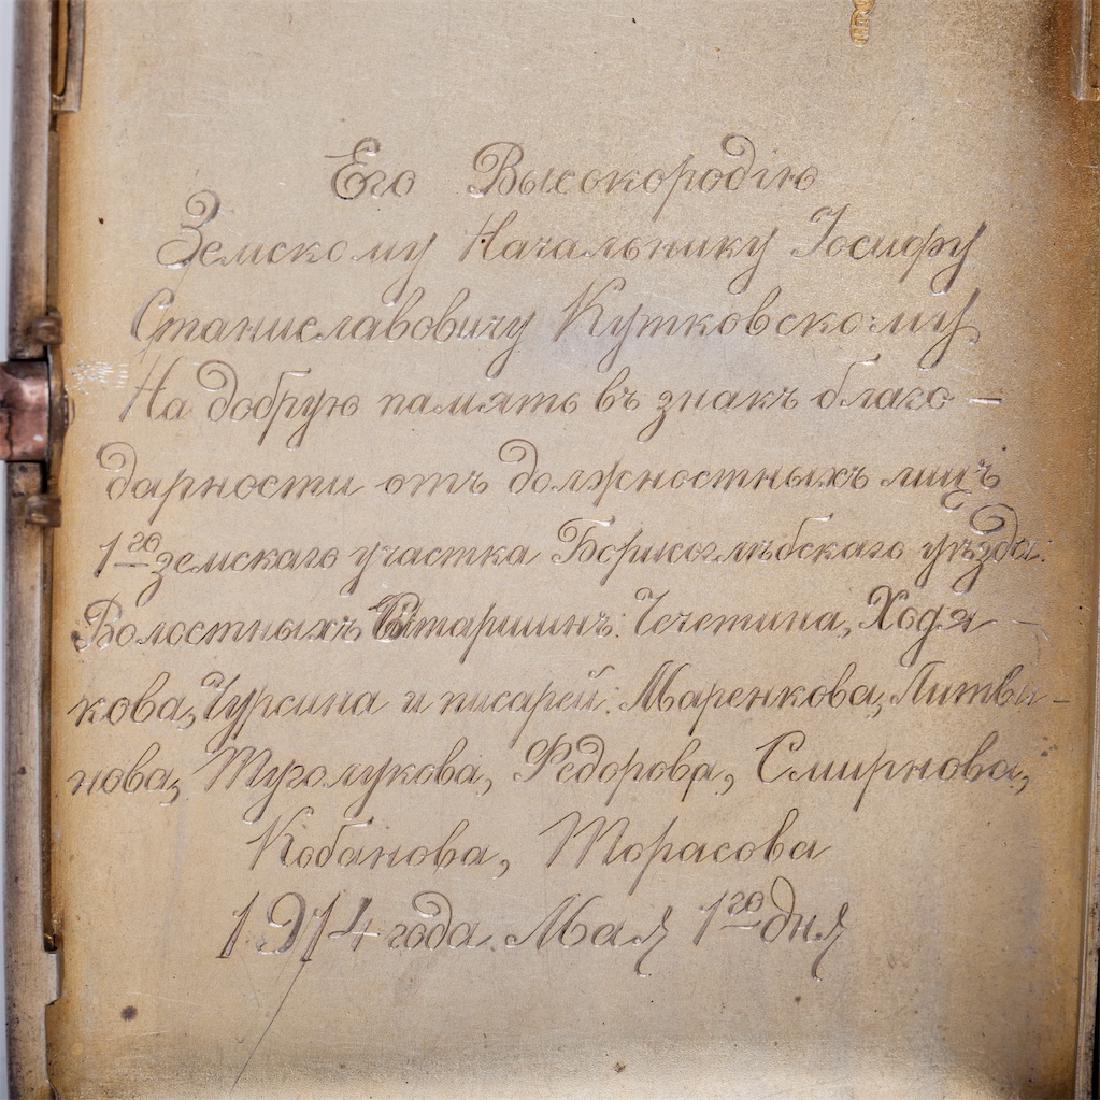 Его Высокородію
Земскому Начальнику Іосифу
Станиславовичу Кутковскому
На добрую память въ знакъ благо-
дарности отъ должностныхъ лицъ
1го земскаго участка Борисоглѣбскаго уѣзда:
Волостныхъ Старшинъ: Чечетина, Ходя-
кова, Чурсина и писарей: Маренкова, Литви-
нова, Туголукова, Федорова, Смирнова,
Кобанова, Торасова
1914 года. Мая 1го дня